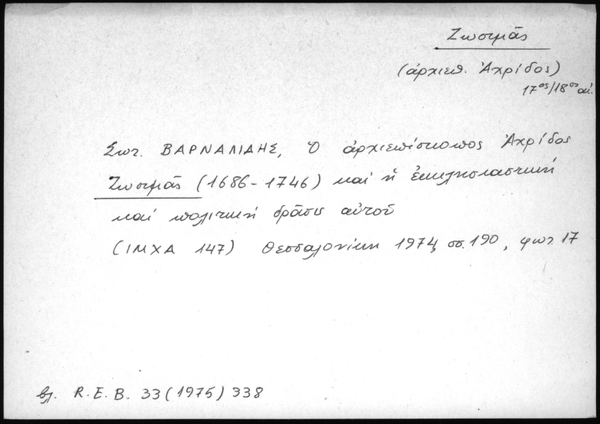 Ζωσιμᾶς
(ἀρχιεπ. Ἀχρίδος)
17ος/18ος αἰ.
Σωτ. ΒΑΡΝΑΛΙΔΗΣ, Ὁ ἀρχιεπίσκοπος Ἀχρίδος
Ζωσιμᾶς (1686-1746) καί ἡ ἐκκλησιαστική
καί πολιτική δρᾶσις αὐτοῦ
(ΙΜΧΑ 147) Θεσσαλονίκη 1974, σσ. 190, φωτ. 17
βλ. R.E.B. 33 (1975) 338